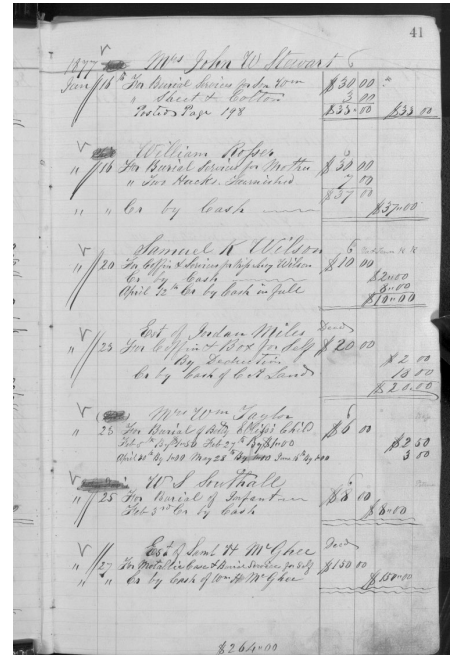 41
1877 Mrs John W Stewart 6
Jan 16th For Burial Services for Son Wm $30 00
" Sheet & Cotton 3 00
Posted Page 198 $33"00 $33 00
William Rosser
" 16 For Burial Services for Mother $30 00
" Two Hacks Furnished 7 00
$37 00
" " Cr by Cash $37"00
Samuel R Wilson 6
" 20 For Coffin & Services for Wilson $10 00
Cr by Cash $2"00
April 12th Cr by Cash in full 8"00
$10"00
Est of Jordan Miles Dead
" 23 For Coffin & Box for Self $20 00
By Deduction $2 00
Cr by Cash of C A Sand 18 00
$20.00
Mrs Wm Taylor 6
" 23 For Burial of Child $6 00
Feb 5th By $1.50 Feb 27th By $1"00 $2 50
April 30th By 1.00 May 28th By 1.00 June 18th By 1.00 3 00
W S Southall 6
" 25 For Burial of Infant $8 00
Feb 3rd Cr by Cash $8"00
Est of Saml H McGhee Dead
" 27 For Metallic Case & Burial Services for Self $150 00
" Cr by Cash of Wm H McGhee $150"00
$264"00